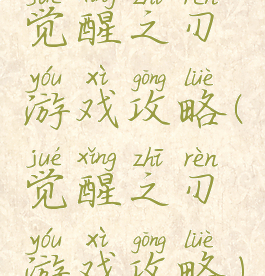 jué xǐng zhī rèn
觉醒之刃
yóu xì gōng lüè
游戏攻略(
jué xǐng zhī rèn
觉醒之刃
yóu xì gōng lüè
游戏攻略)